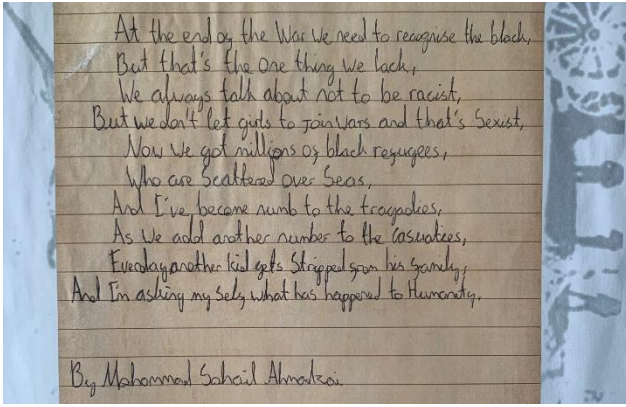 At the end of the War we need to recognise the black,
But that's the one thing we lack,
We always talk about not to be racist,
But we don't let girls to Join Wars and that's Sexist,
Now we got millions of black refugees,
Who are Scattered over Seas,
And I've become numb to the tragadies,
As we add another number to the Casuaties,
Everday another kid gets Stripped from his family,
And I'm asking my self what has happened to Humanity.
By Mohammad Sohail Ahmadzai